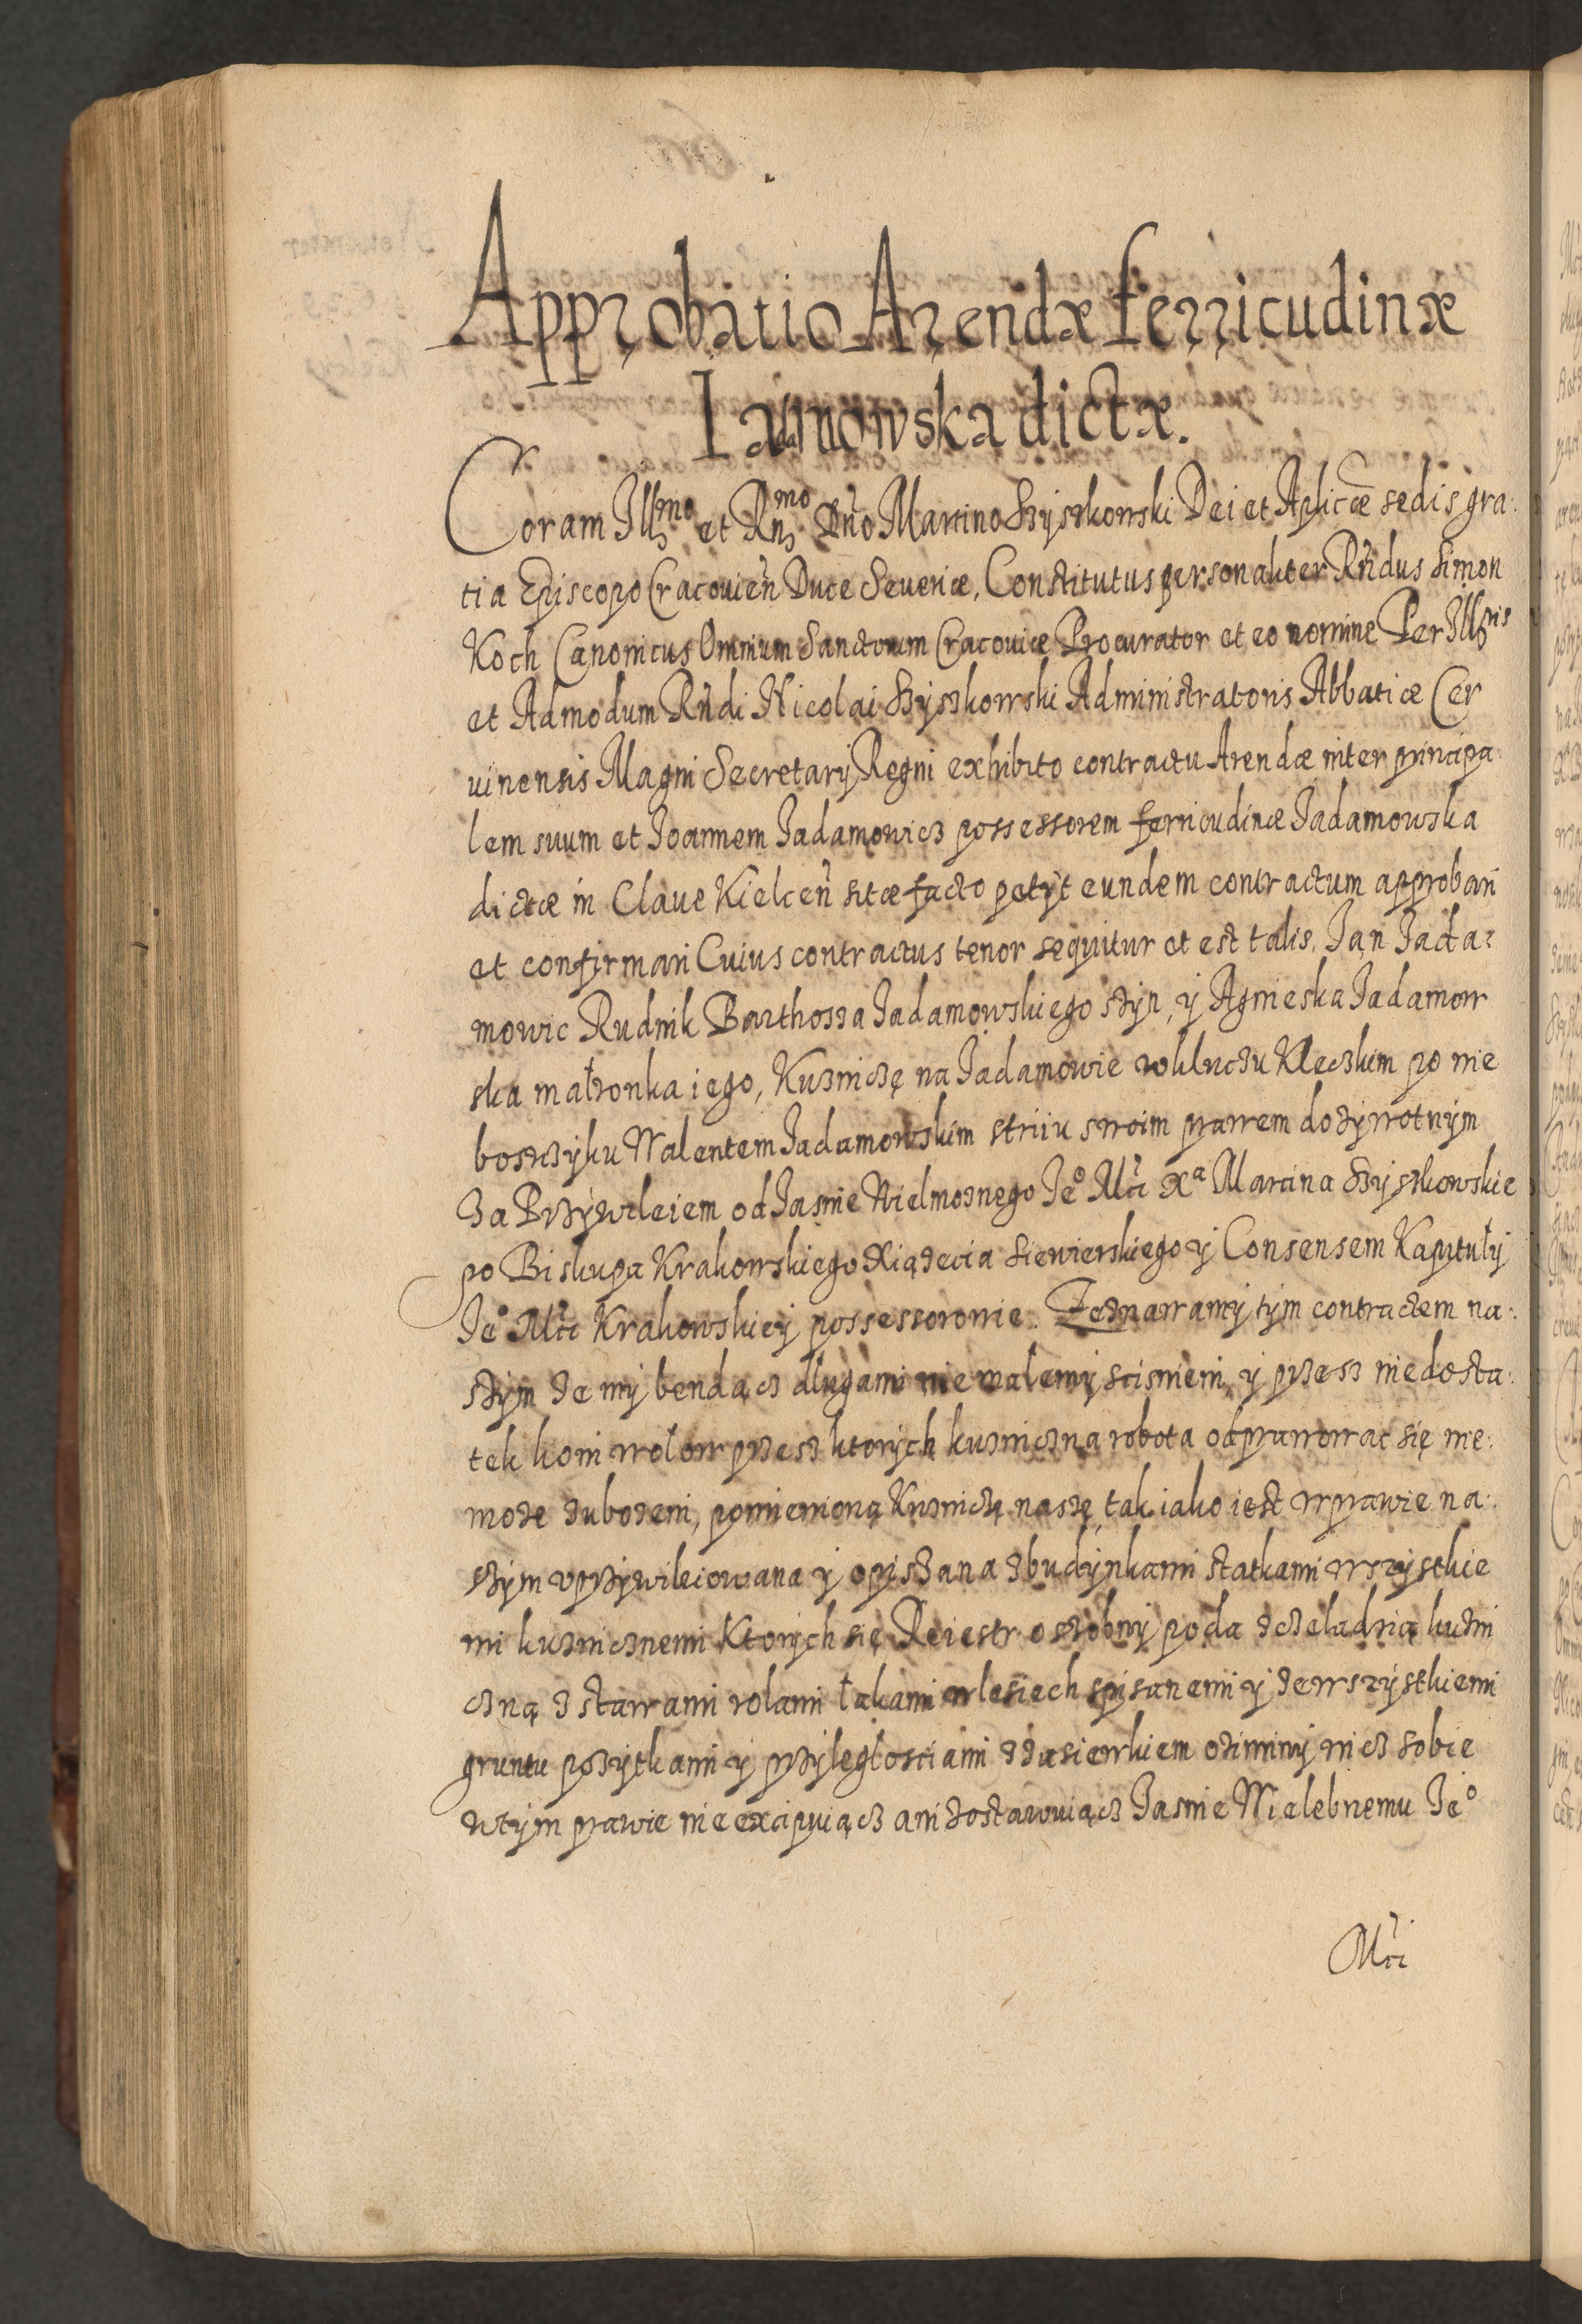 Approbatio Arendæ ferricudinæ
Iadamowska dictæ.
Coram Illmo et Rndmo Dño Martino Szyszkowski Dei et Aplicæ sedis gra:
tia Episcopo Cracovieñ Duce Severiæ, Constitutus personaliter Rñdus Simon
Koch Canonicus Omnium Sanctorum Cracoviæ Procurator et eo nomine Per Illris
et Admodum Rñdi Nicolai Szyszkowski Administratoris Abbatiæ Cer
vinensis Magni Secretarÿ Regni exhibito contractu Arendæ inter principa:
lem suum et Joannem Jadamowicz possessorem ferricudinæ Jadamowska
dictæ in Clave Kielceñ sitæ facto petÿt eundem contractum approbari
et confirmari Cuius contractus tenor sequitur et est talis. Jan Jada:
mowic Rudnik Barthosza Jadamowskiego szÿn, ÿ Agnieska Jadamow
ska małzonka iego, Kuzniczę na Jadamowie wkluczu Kieleczkim po nie
boszczÿku Walentem Jadamowskim striiu swoim prawem dozÿwotnÿm
Za Przÿwileiem od Jasnie Wielmoznego Je° Mci Xa Marcina Szÿszkowskie
go Biskupa Krakowskiego Xiązecia Siewierskiego ÿ Consensem Kapitułÿ
Je° Mci Krakowskieÿ possessorowie. Zeznawamÿ tÿm contractem na:
szÿm ze mÿ bendącz długami nie malemÿ scisnieni, ÿ przesz niedosta:
tek koni wołow przesz ktorÿch kuzniczna robota odprawowac się nie:
moze zubozeni, pomienioną Kuznicę naszę, tak iako iest wprawie na:
szÿm uprzÿwileiowana ÿ opiszana zbudÿnkami statkami wszÿstkie
mi kuznicznemi Ktorÿch się Reiestr oszobnÿ poda zczeladnią kuzni
czną zstawami rolami łąkami wlesiech spisanemi ÿ zewszÿstkiemi
gruntu pozÿtkami ÿ przÿległosciami zzasiewkiem oziminÿ nicz sobie
wtÿm prawie nie excipuiącz ani zostawuiącz Jasnie Wielebnemu Je°
Mci